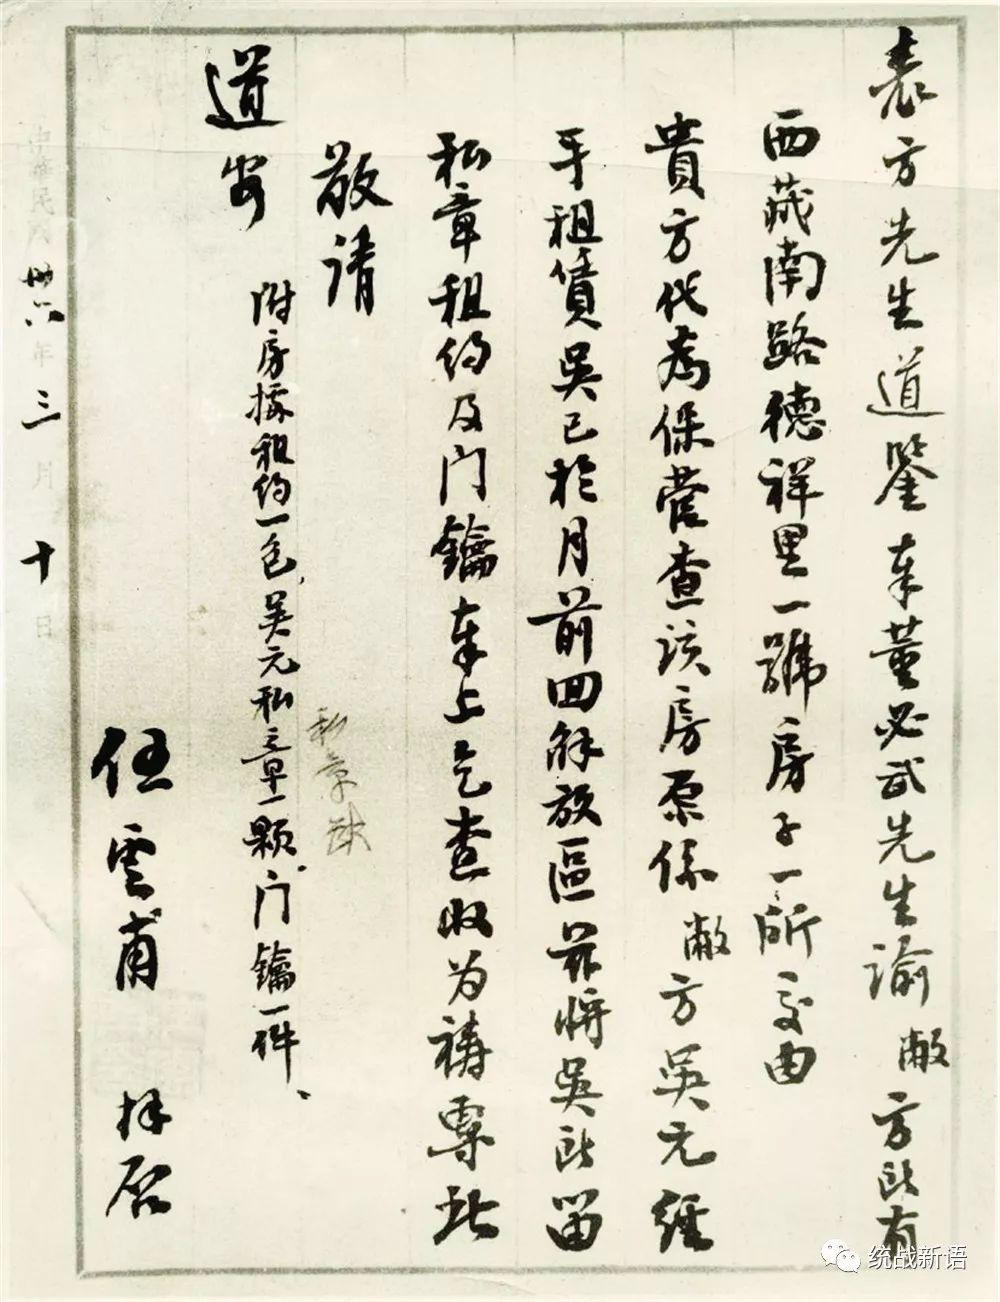 表方先生道鉴奉董必武先生谕敝方所有
西藏南路德祥里一號房子一所交由
貴方代為保管查该房原係敝方吳元經
手租賃吳已於月前回解放區茲將吳所留
私章租约及门鑰奉上乞查收为禱專此
敬请
道安
附房據租约一包、吴元私章一颗、门鑰一件、
私章缺
伍雲甫 拜启
中華民国卅六年三月十日
统战新语